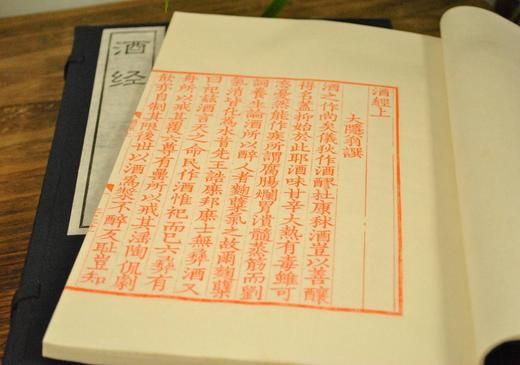 酒经
酒經上
大隱翁譔
酒之作尚矣儀狄作酒醪杜康秫酒豈以善釀
得名蓋抑始於此耶酒味甘辛大熱有毒雖可
忘憂然能作疾所謂腐腸爛胃潰髓蒸筋而劉
詞養生論酒所以醉人者麴糵氣之故爾麴糵
氣消皆化為水昔先王誥庶邦庶士無彝酒又
曰祀茲酒言天之命民作酒惟祀而已六彝有
舟所以戒其覆六尊有罍所以戒其淫陶侃劇
飲亦自制其限後世以酒為漿不醉反恥豈知